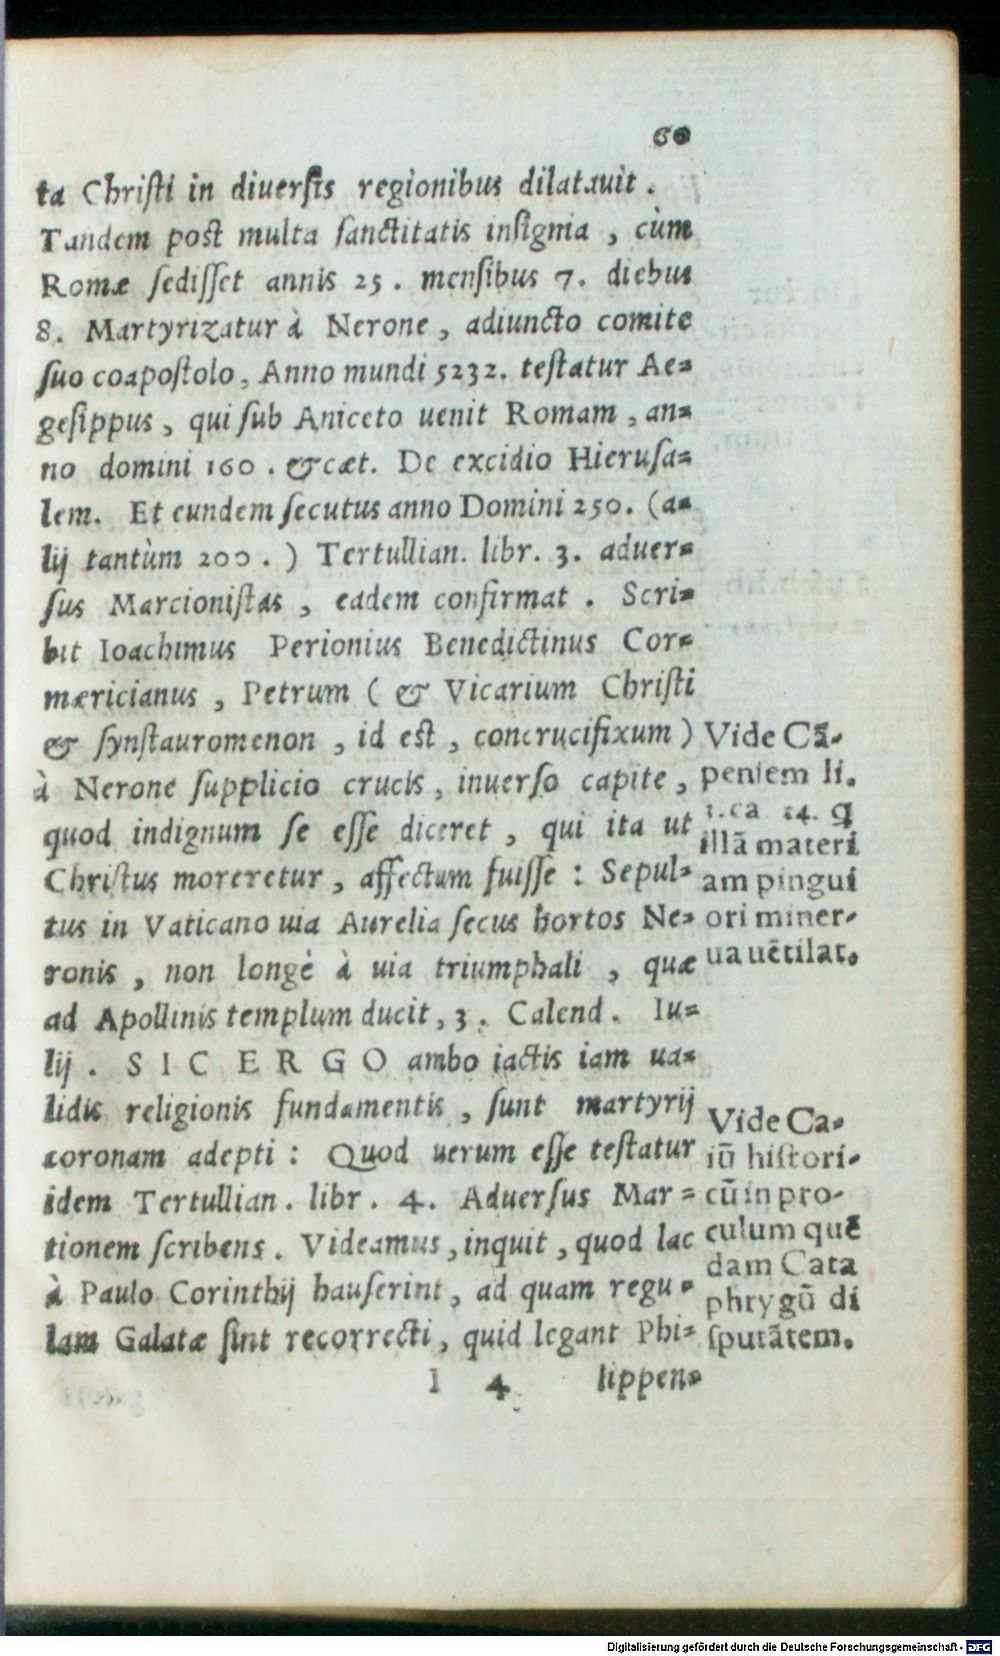 60
ta Christi in diuersis regionibus dilatauit.
Tandem post multa sanctitatis insignia, cùm
Romæ sedisset annis 25. mensibus 7. diebus
8. Martyrizatur à Nerone, adiuncto comite
suo coapostolo, Anno mundi 5232. testatur Ae=
gesippus, qui sub Aniceto uenit Romam, an=
no domini 160. &cæt. De excidio Hierusa=
lem. Et eundem secutus anno Domini 250. (a=
lij tantùm 200.) Tertullian. libr. 3. aduer=
sus Marcionistas, eadem confirmat. Scri=
bit Ioachimus Perionius Benedictinus Cor=
mæricianus, Petrum (& Vicarium Christi
& synstauromenon, id est, concrucifixum)
à Nerone supplicio crucis, inuerso capite,
quod indignum se esse diceret, qui ita ut
Christus moreretur, affectum fuisse: Sepul=
tus in Vaticano uia Aurelia secus hortos Ne=
ronis, non longè à uia triumphali, quæ
ad Apollinis templum ducit, 3. Calend. Iu=
lij. SIC ERGO ambo iactis iam ua=
lidis religionis fundamentis, sunt martyrij
coronam adepti: Quod uerum esse testatur
idem Tertullian. libr. 4. Aduersus Mar=
tionem scribens. Videamus, inquit, quod lac
à Paulo Corinthij hauserint, ad quam regu=
lam Galatæ sint recorrecti, quid legant Phi=
I 4 lippen=
Vide Cā-
pensem li.
1. ca 14. q
illā materi
am pingui
ori miner-
ua uētilat.
Vide Ca-
iū histori-
cū in pro-
culum quē
dam Cata
phrygū di
sputātem.
Digitalisierung gefördert durch die Deutsche Forschungsgemeinschaft - DFG